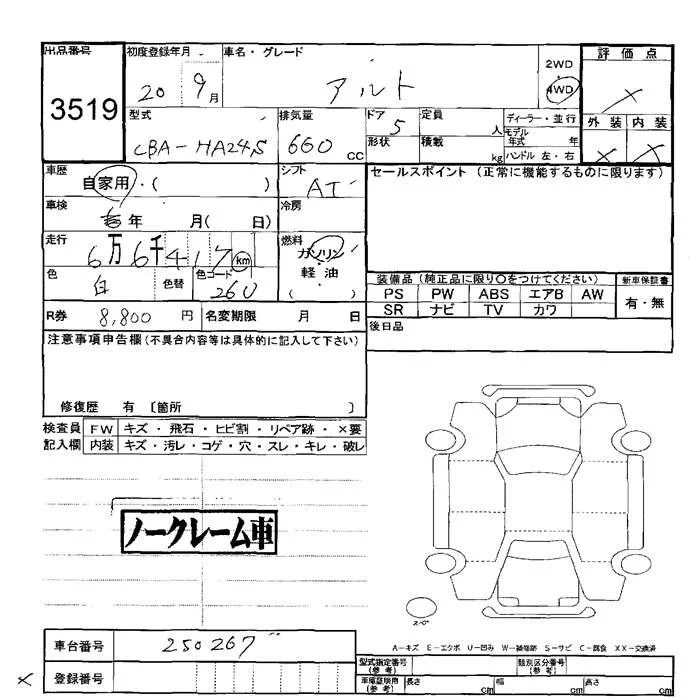 出品番号 3519
初度登録年月 20 9月
車名・グレード アルト
2WD
4WD
評価点 ×
外装 × 内装 ×
型式 CBA-HA24S
排気量 660 CC
ドア 5
形状
定員 人
積載 kg
ディーラー・並行
モデル年式 年
ハンドル 左・右
車歴 自家用・( )
シフト AT
セールスポイント (正常に機能するものに限ります)
車検 年 月( 日)
冷房
走行 6万6千417km
燃料 ガソリン・軽油
( )
色 白 色替 色コード 260
装備品 (純正品に限り〇をつけてください)
新車保証書
PS PW ABS エアB AW
有・無
SR ナビ TV カワ
R券 8,800 円 名変期限 月 日
後日品
注意事項申告欄 (不具合内容等は具体的に記入して下さい)
修復歴 有 〔箇所 〕
検査員 FW キズ・飛石・ヒビ割・リペア跡・×要
記入欄 内装 キズ・汚レ・コゲ・穴・スレ・キレ・破レ
ノークレーム車
スペア
A-キズ E-エクボ U-凹み W-補修跡 S-サビ C-腐食 XX-交換済
車台番号 250267
型式指定番号 (参考)
類別区分番号 (参考)
× 登録番号
車庫証明用 (参考) 長さ cm 幅 cm 高さ cm